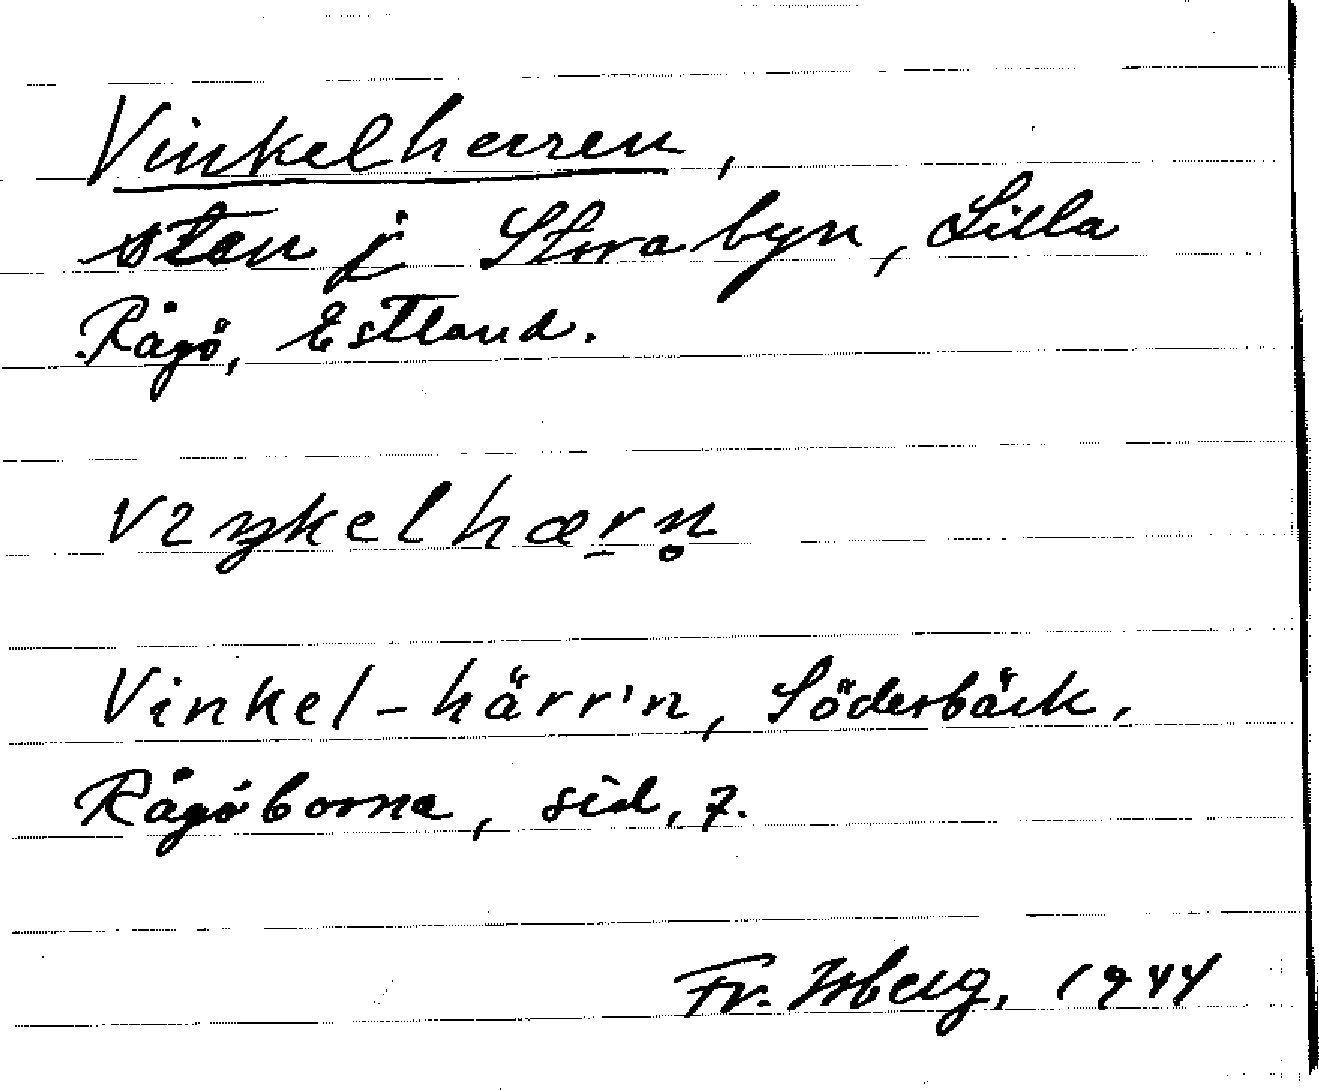 Vinkelherren,
sten i Storabyn, Lilla
Rågö, Estland.
vıŋkelhærn̥
Vinkel-härr'n, Söderbäck,
Rågöborna, sid, 7.
Fr. Isberg, 1944